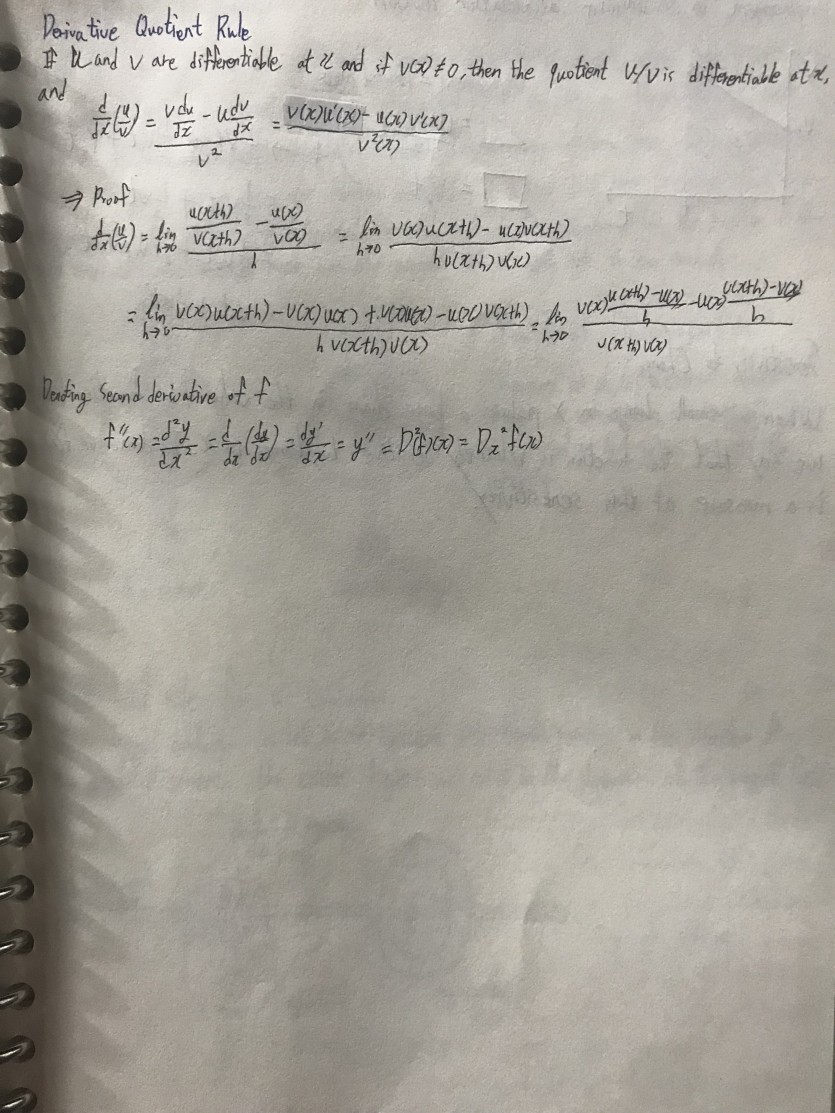 Derivative Quotient Rule
If u and v are differentiable at x and if v(x) ≠ 0, then the quotient u/v is differentiable at x,
and
d/dx (u/v) = (v du/dx - u dv/dx) / v² = (v(x)u'(x) - u(x)v'(x)) / v²(x)
⇒ Proof
d/dx (u/v) = lim h→0 (u(x+h)/v(x+h) - u(x)/v(x)) / h = lim h→0 (v(x)u(x+h) - u(x)v(x+h)) / (h v(x+h) v(x))
= lim h→0 (v(x)u(x+h) - v(x)u(x) + v(x)u(x) - u(x)v(x+h)) / (h v(x+h) v(x)) = lim h→0 (v(x) (u(x+h) - u(x))/h - u(x) (v(x+h) - v(x))/h) / (v(x+h) v(x))
second derivative of f
f''(x) = d²y/dx² = d/dx (dy/dx) = dy'/dx = y'' = D²(f)(x) = Dₓ² f(x)